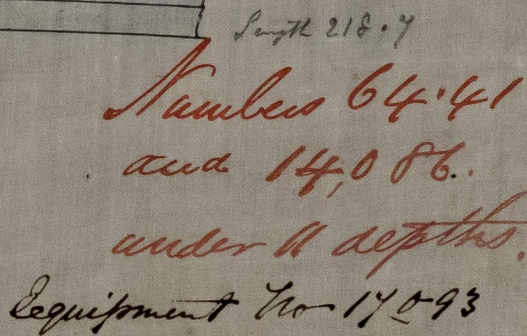 Length 218.7
Numbers 64.41
and 14,086.
under a depths.
Equipment No 17093